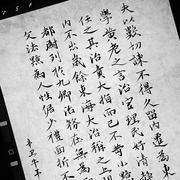 以數切諫不得久留內遷為東
學黃老之言治官理民好清靜
任之其治責大指而已不苛小
內不出歲餘東海大治稱之上
都尉列於九卿治務在
文法黯為人性倨少禮面折不